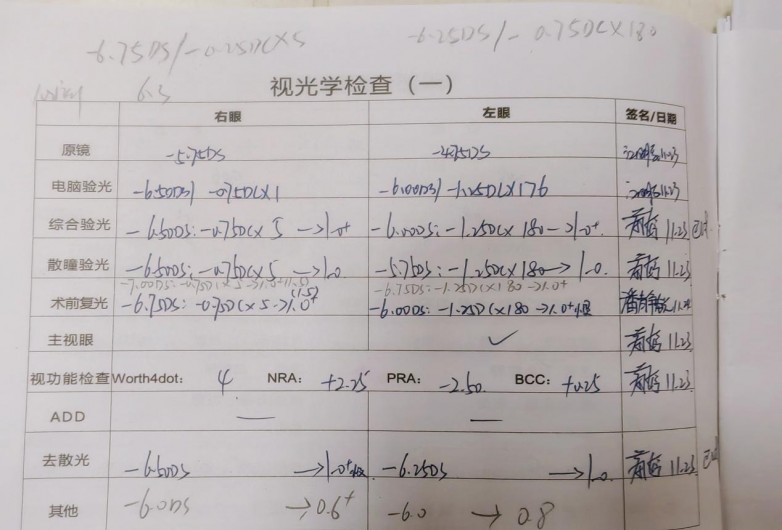 -6.75DS/-0.25DC×5 -6.25DS/-0.75DC×180
6.3 视光学检查（一）
右眼 左眼 签名/日期
原镜 -5.75DS -4.75DS 11.23
电脑验光 -6.50DS/ -0.75DC×1 -6.00DS/ -1.25DC×176 11.23
综合验光 -6.50DS: -0.75DC× 5 →1.0+ -6.00DS: -1.25DC× 180 →1.0+ 11.23
散瞳验光 -6.50DS: -0.75DC×5 →1.0 -5.75DS: -1.25DC×180→ 1.0 11.23
-7.00DS: -0.75DC×5→1.0+(1.5) -6.75DS: -1.25DC×180→1.0+
术前复光 -6.75DS: -0.75DC×5→1.0+ (1.5) -6.00DS: -1.25DC×180→1.0+
主视眼 ✓ 11.23
视功能检查 Worth4dot: 4 NRA: +2.25 PRA: -2.50 BCC: +0.25 11.23
ADD — —
去散光 -6.50DS →1.0+ -6.25DS →1.0 11.23
其他 -6.0DS →0.6+ -6.0 → 0.8